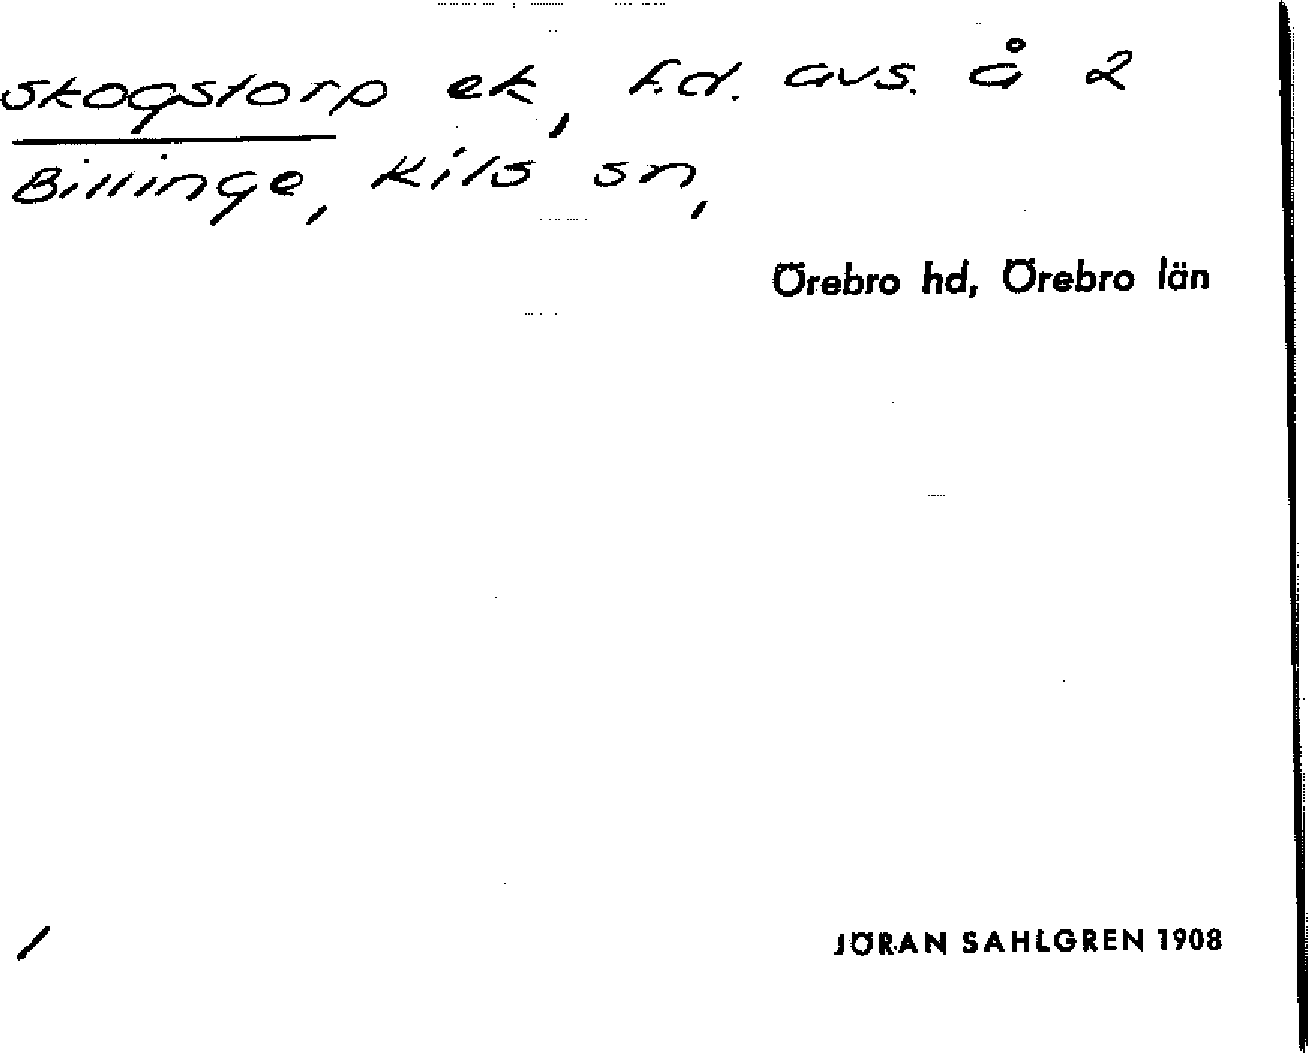 Skogstorp ek, f.d. avs. å 2
Billinge, Kils sn,
Örebro hd, Örebro län
/
JÖRAN SAHLGREN 1908